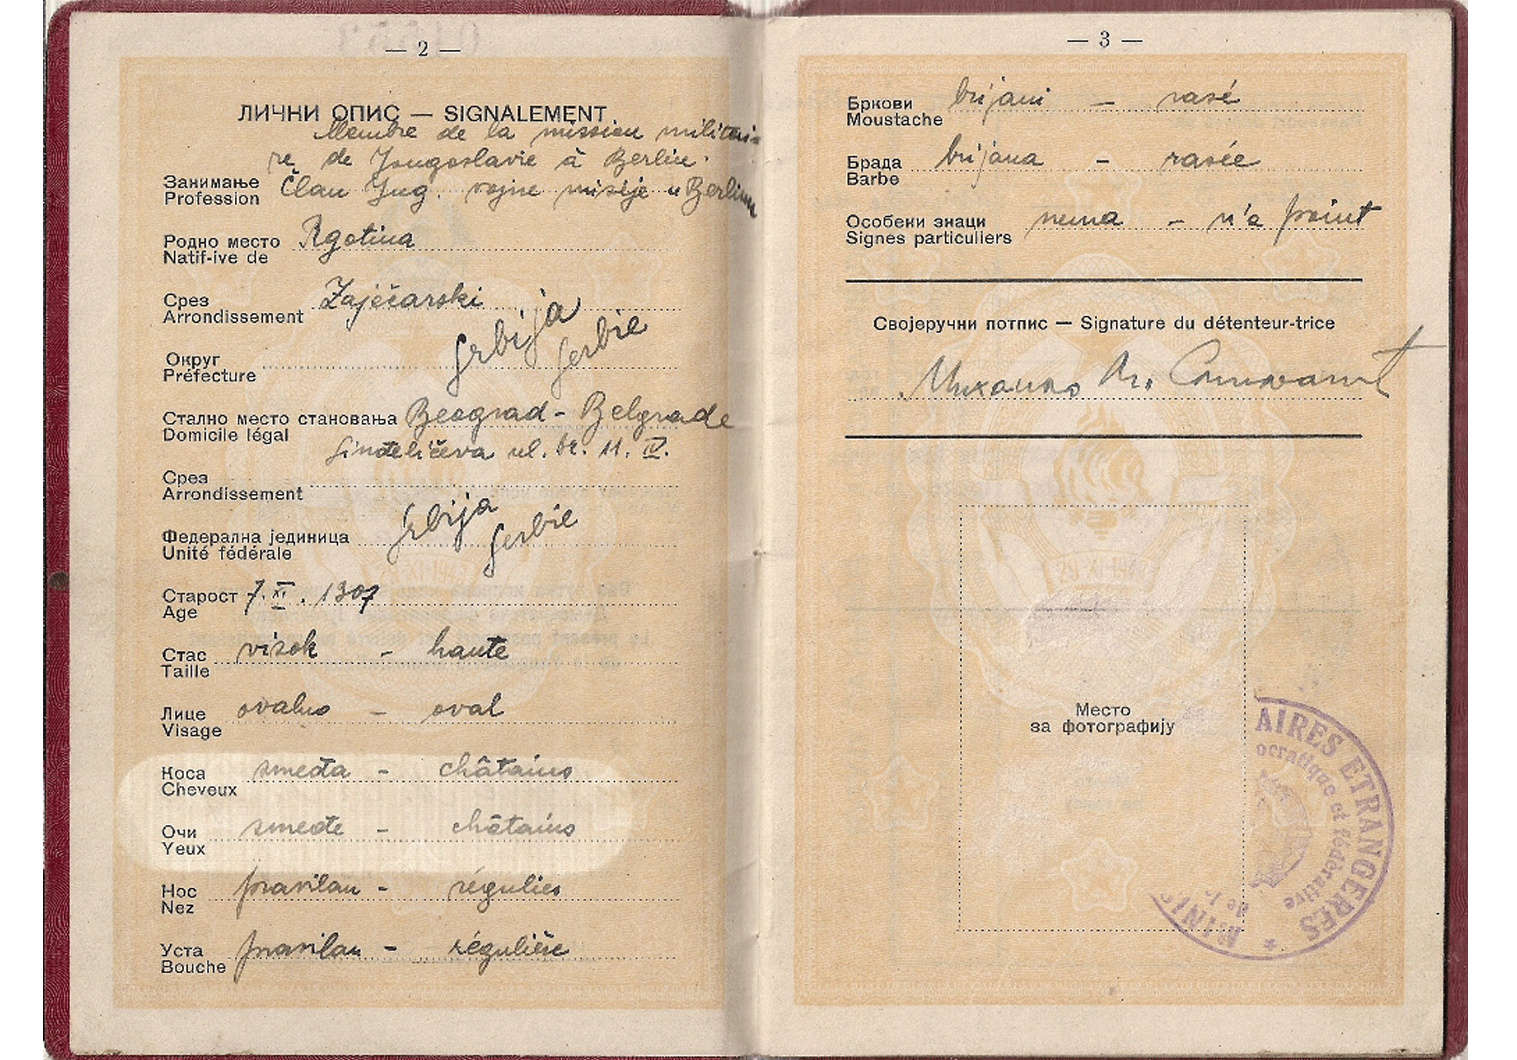 — 2 —
ЛИЧНИ ОПИС — SIGNALEMENT
Membre de la mission militai-
re de Yougoslavie à Berlin.
Занимање Član Jug. vojne misije u Berlinu
Profession
Родно место Rgotina
Natif-ive de
Срез Zaječarski
Arrondissement
Srbija
Serbie
Округ
Préfecture
Стално место становања Beograd - Belgrade
Domicile légal
Sinđelićeva ul. br. 11. IV.
Срез
Arrondissement
Srbija
Serbie
Федерална јединица
Unité fédérale
Старост 7. XI. 1907
Age
Стас visok - haute
Taille
Лице ovalno - oval
Visage
Коса smeđa - châtains
Cheveux
Очи smeđe - châtains
Yeux
Нос pravilan - régulier
Nez
Уста pravilan - régulière
Bouche
— 3 —
Бркови brijani - rasé
Moustache
Брада brijana - rasée
Barbe
Особени знаци nema - n'a point
Signes particuliers
Својеручни потпис — Signature du détenteur-trice
Михаило
29·XI·1943
Место
за фотографију
AIRES ETRANGERES
ocratique et fédérative
de
MINI